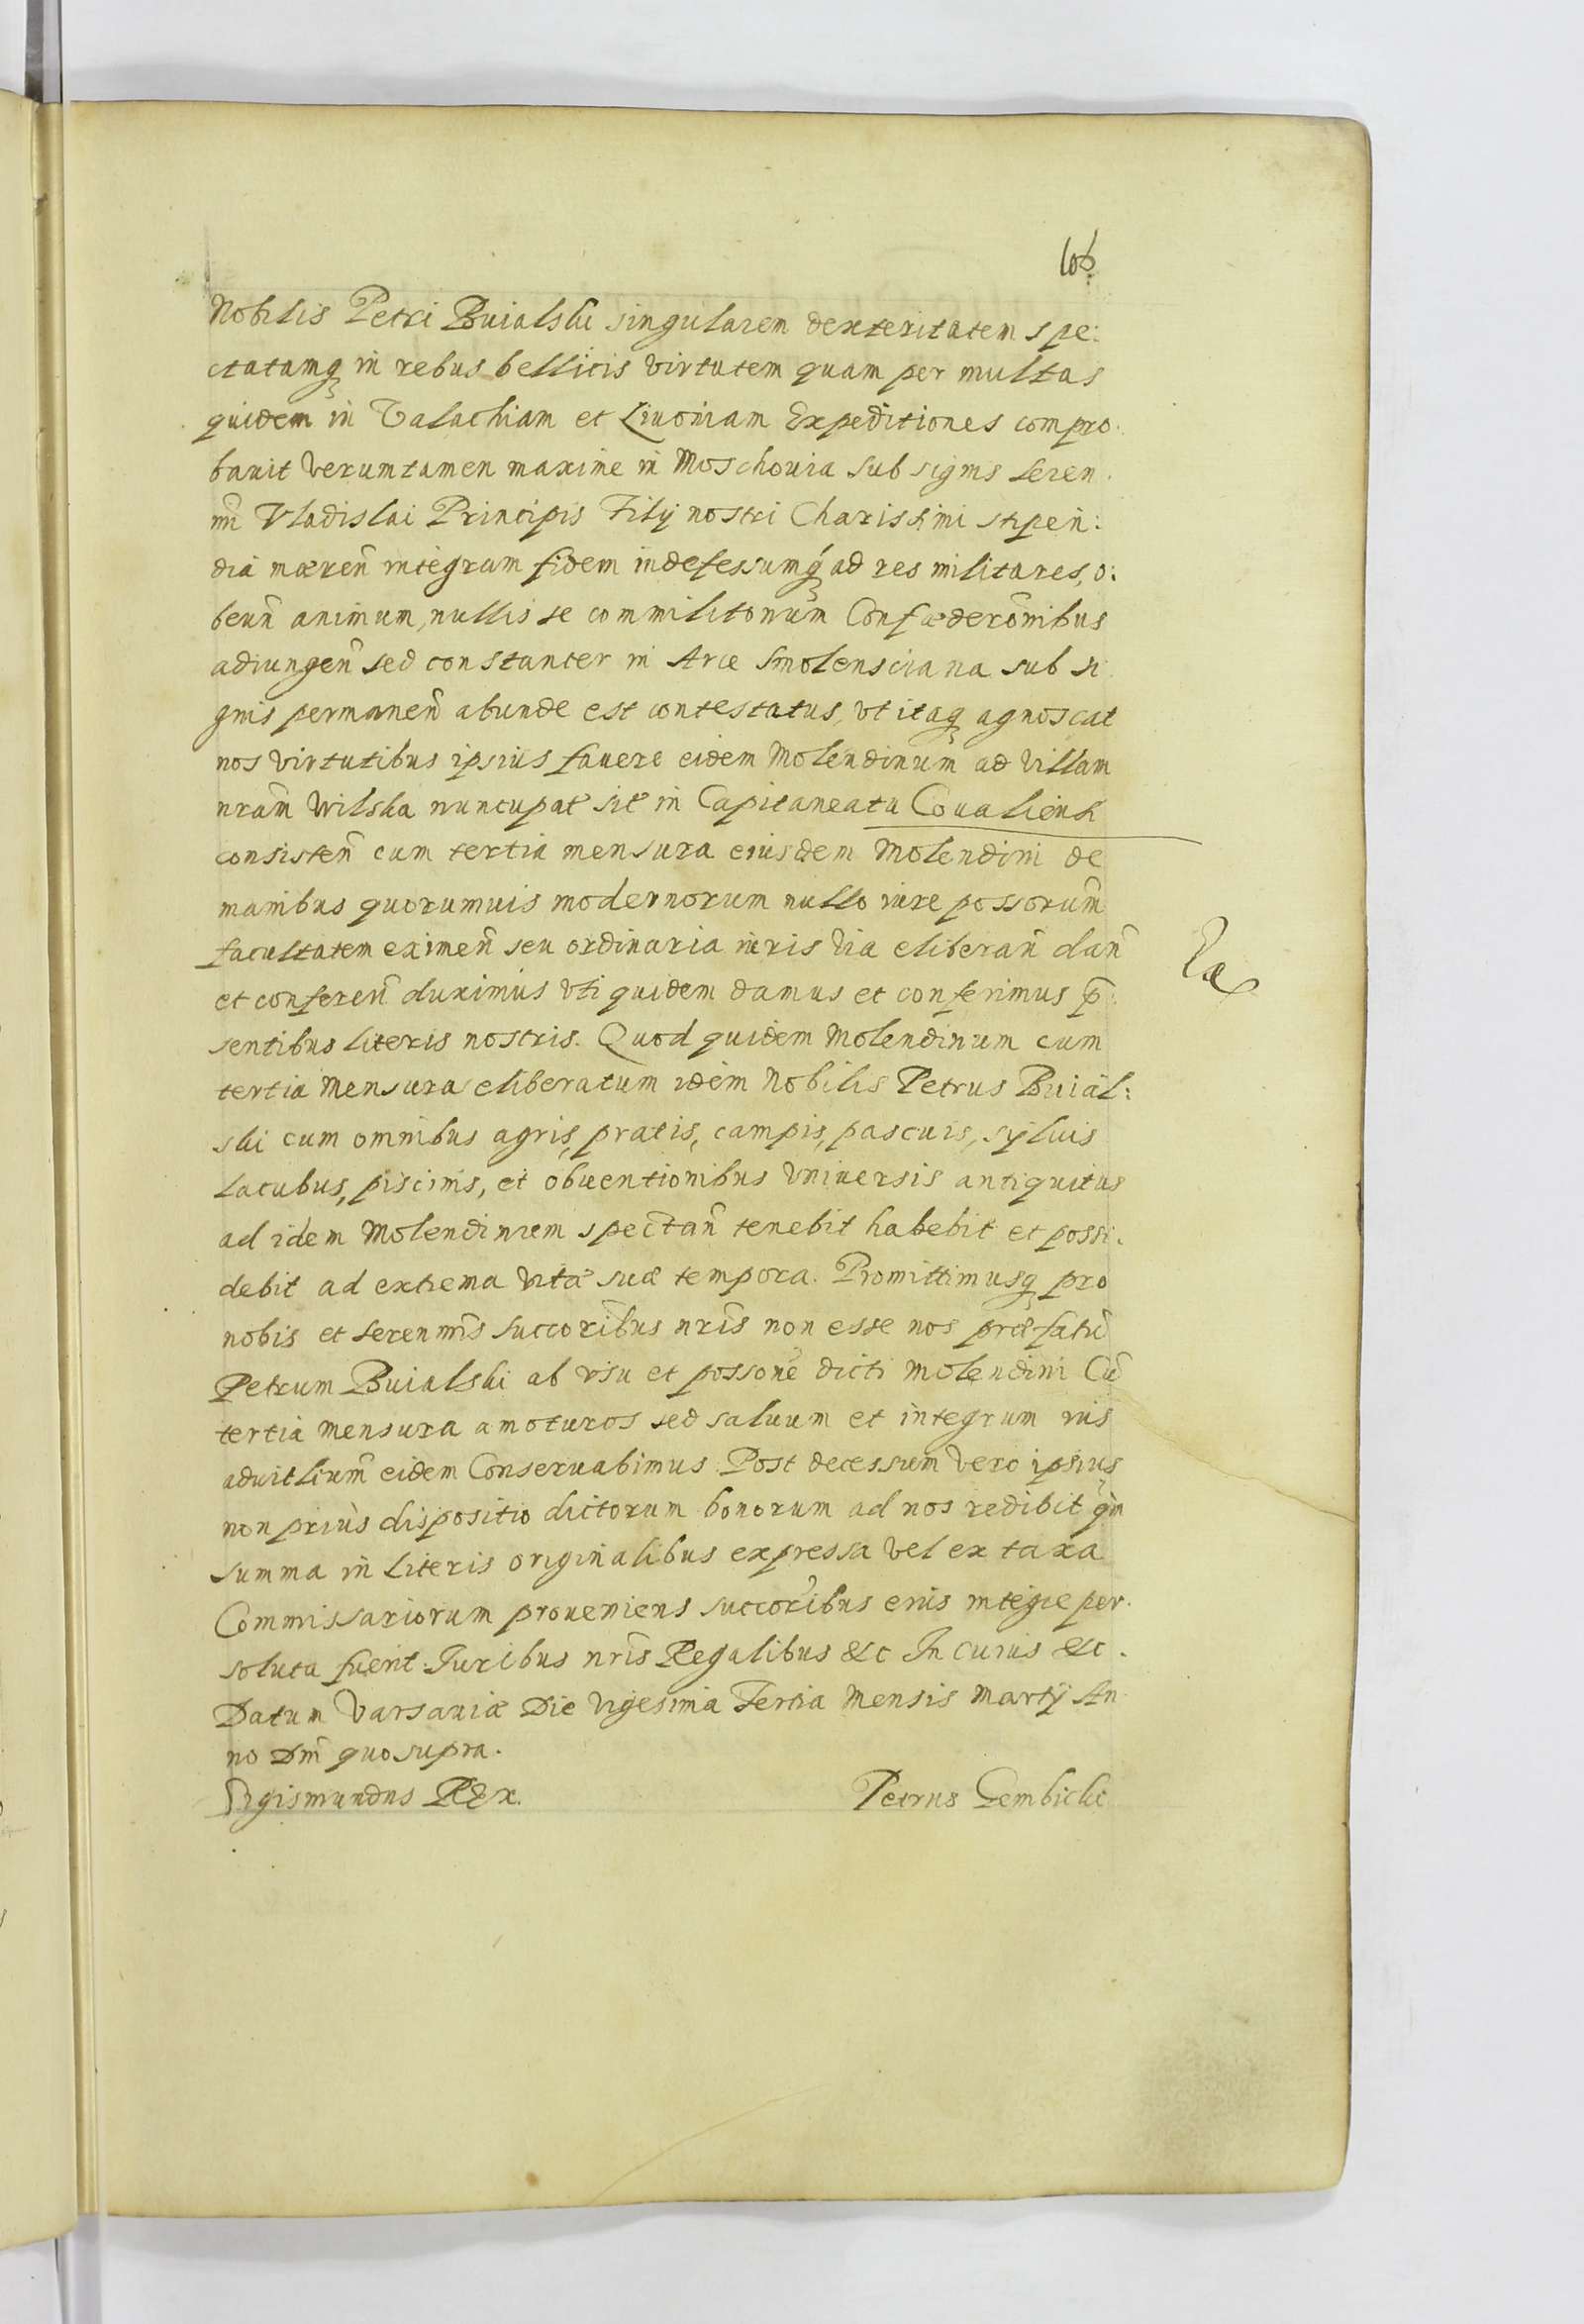 106
Nobilis Petri Buialski singularem dexteritatem spe:
ctatamq́ in rebus bellicis virtutem quam per multas
quidem in Valachiam et Livoniam Expeditiones compro
bauit verumtamen maxime in Moschouia sub signis Seren
mi Vladislai Principis Filij nostri Charissimi stipen:
dia mæreñ integram fidem indefessumq́ ad res militares, o:
beuñ animum, nullis se commilitonum Confæderõnibus
adiungeñ sed constanter in Arce Smolensciana sub si
gnis permaneñ abunde est contestatus, vt itaq agnoscat
nos virtutibus ipsius fauere eidem Molendinum ad Villam
nram̃ Wilska nuncupat̃ sit̃ in Capitaneatu Coualień
consisteñ cum tertia mensura eiusdem Molendini de
manibus quorumuis modernorum nullo iure possorum̃
facultatem eximeñ seu ordinaria iuris via eliberañ dañ
et confereñ duximus vti quidem damus et conferimus p̃
sentibus literis nostris. Quod quidem Molendinum cum
tertia Mensura eliberatum idem Nobilis Petrus Buial:
ski cum omnibus agris, pratis, campis, pascuis, syluis
lacubus, piscinis, et obuentionibus vniuersis antiquitus
ad idem Molendinum spectañ tenebit habebit et possi.
debit ad extrema vitæ suæ tempora. Promittimusq pro
nobis et Serenmis̃ Succorĩbus nris̃ non esse nos præfatũ
Petrum Buialski ab vsu et possonẽ dicti Molendini Cũ
tertia Mensura amoturos sed saluum et integrum ius
aduitlium̃ eidem Conseruabimus. Post decessum vero ipsius
non priùs dispositio dictorum bonorum ad nos redibit q̃m
summa in literis originalibus expressa vel ex taxa
Commissariorum proueniens succorĩbus eius integre per.
soluta fuerit. Iuribus nris̃ Regalibus &c In cuius &c.
Datum Varsauiæ Die Vigesima Tertia Mensis Martij An
no Dnĩ quo supra.
Sigismundus REx. Petrus Gembicki